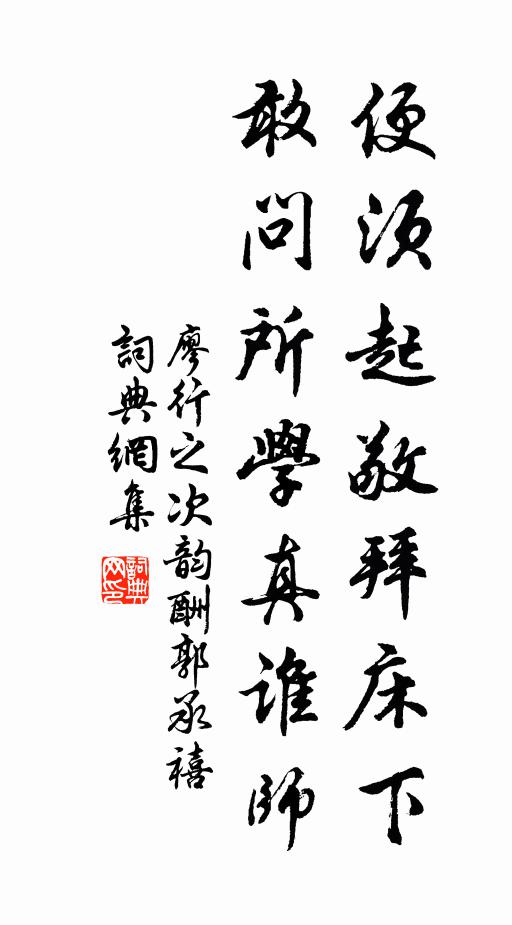 便須起敬拜床下
敢問所學真誰師
廖行之次韵酬郭承禧
詞典網集
詞典
网印